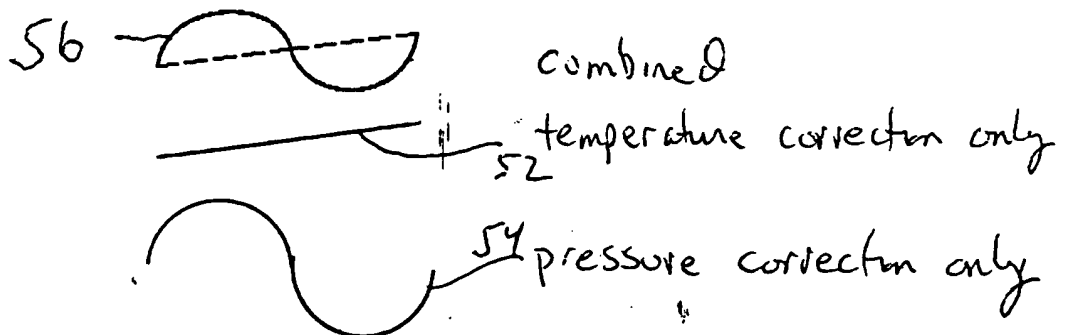 56 combined
temperature correction only
52
54 pressure correction only